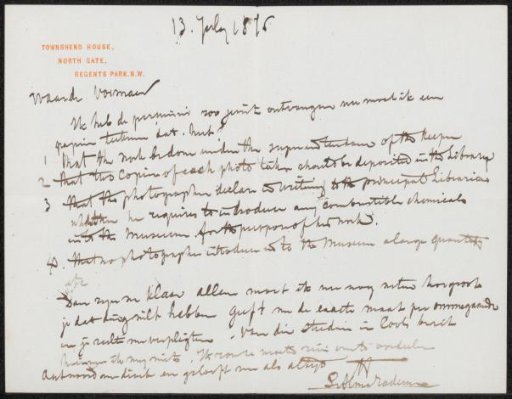 13 July 1876
TOWNSHEND HOUSE,
NORTH GATE,
REGENTS PARK. N.W.
Waarde Vosmaer
Ik heb de permissie zoo juist ontvangen nu moet ik een
papier dat.
1 that the work be done under the superintendence of the Keeper
2 that two copies of each photo taken should be deposited in the library
3 that the photographer declare in writing to the principal librarian
whether he requires to introduce any combustible chemicals
into the Museum for the purpose of his work.
4. that no photographer introduce into the Museum a large quantity
etc
Dan zijn we klaar alleen moet ik nu nog weten hoe groot
je dat ding wilt hebben geeft me de exacte maat per omgaande
en je zult me verpligten. Van die
niets. Ik
Antwoord en geloof me als altijd
L Alma Tadema